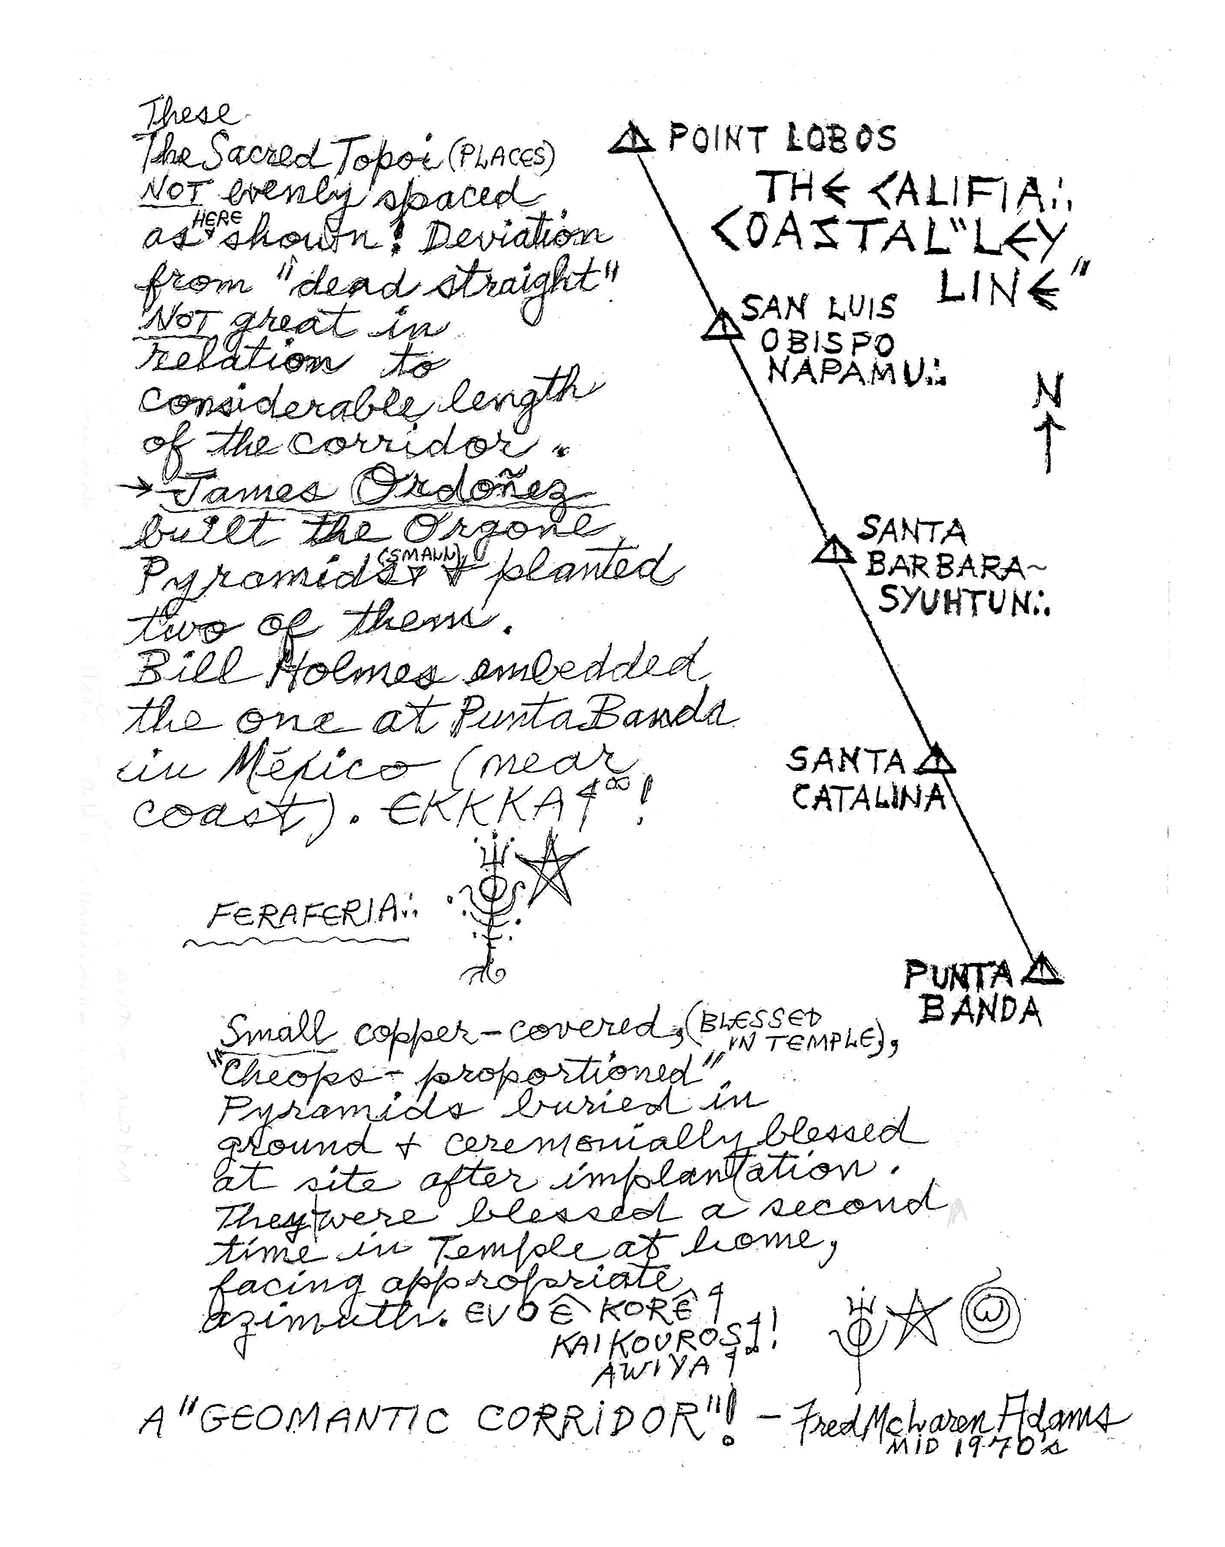 These
The Sacred Topoi (PLACES)
NOT evenly spaced
as HERE shown! Deviation
from "dead straight"
NOT great in
relation to
considerable length
of the corridor.
→ James Ordoñez
built the Orgone
Pyramids (SMALL) & planted
two of them.
Bill Holmes embedded
the one at Punta Banda
in México (near
coast). EKKKA !
FERAFERIA∴
POINT LOBOS
THE CALIFIA∴
COASTAL "LEY
LINE"
SAN LUIS
OBISPO
NAPAMU∴
N
SANTA
BARBARA~
SYUHTUN∴
SANTA
CATALINA
PUNTA
BANDA
Small copper-covered, (BLESSED
IN TEMPLE),
"in Cheops-proportioned"
Pyramids buried in
ground & ceremonially blessed
at site after implantation.
They were blessed a second
time in Temple at home,
facing appropriate
azimuth. EVOÊ KORÊ
KAI KOUROS !
AWIYA
A "GEOMANTIC CORRIDOR"! - Fred McLaren Adams
MID 1970's